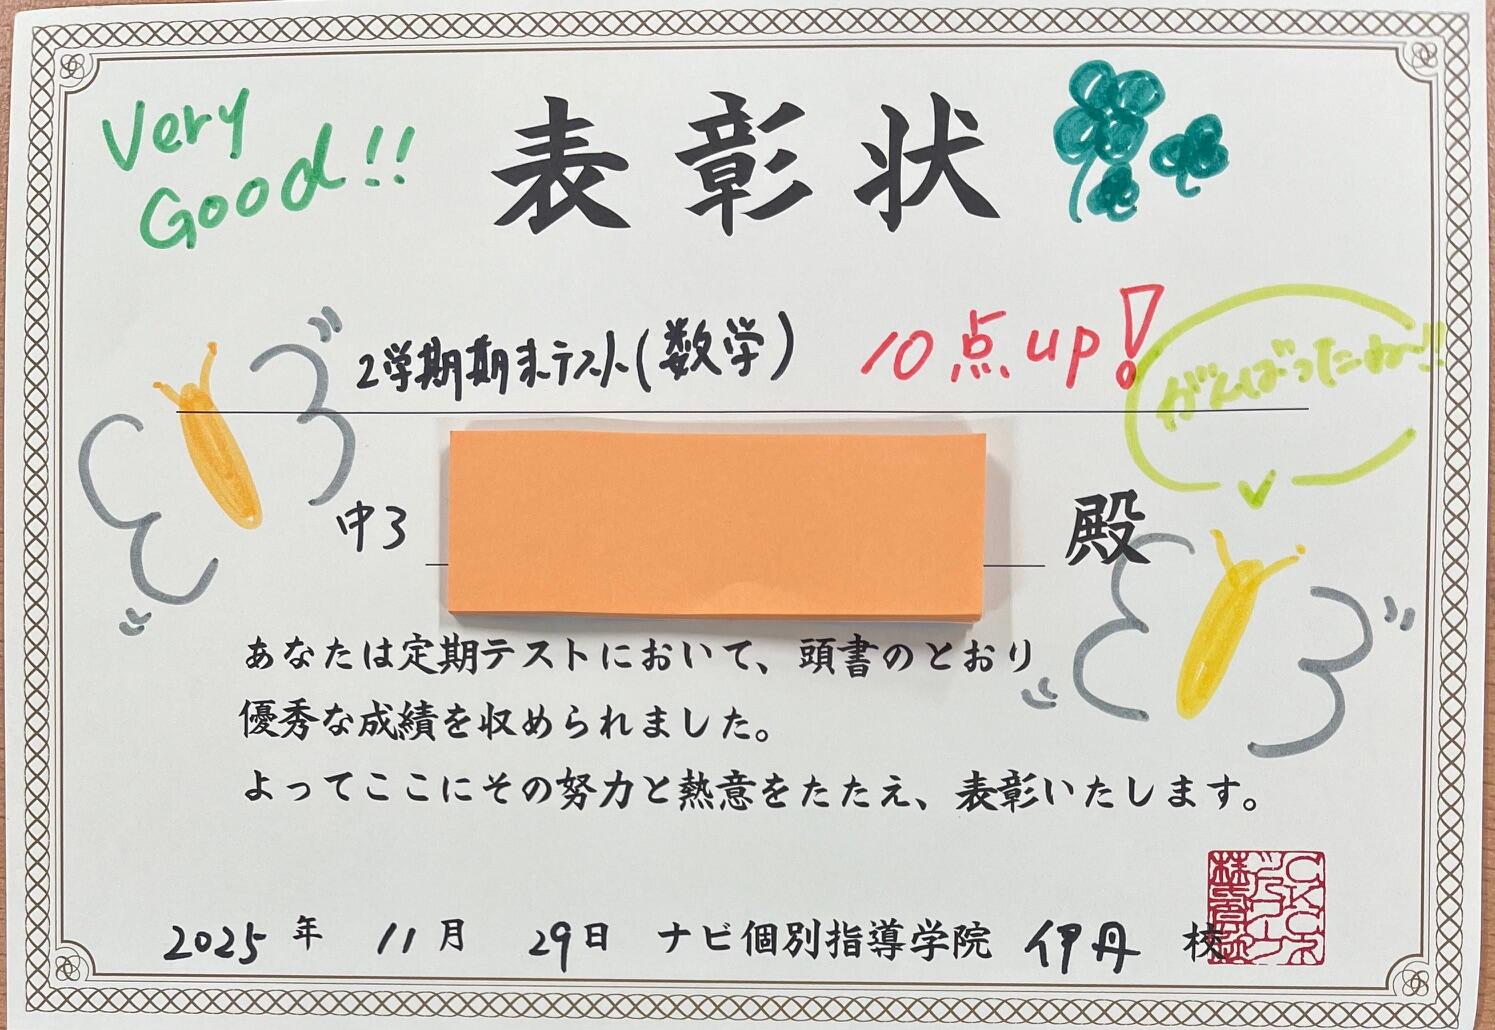 Very
Good!!
表彰状
2学期期末テスト(数学) 10点up!
がんばったね〜!!
中3 殿
あなたは定期テストにおいて、頭書のとおり
優秀な成績を収められました。
よってここにその努力と熱意をたたえ、表彰いたします。
2025年 11月 29日 ナビ個別指導学院 伊丹 校